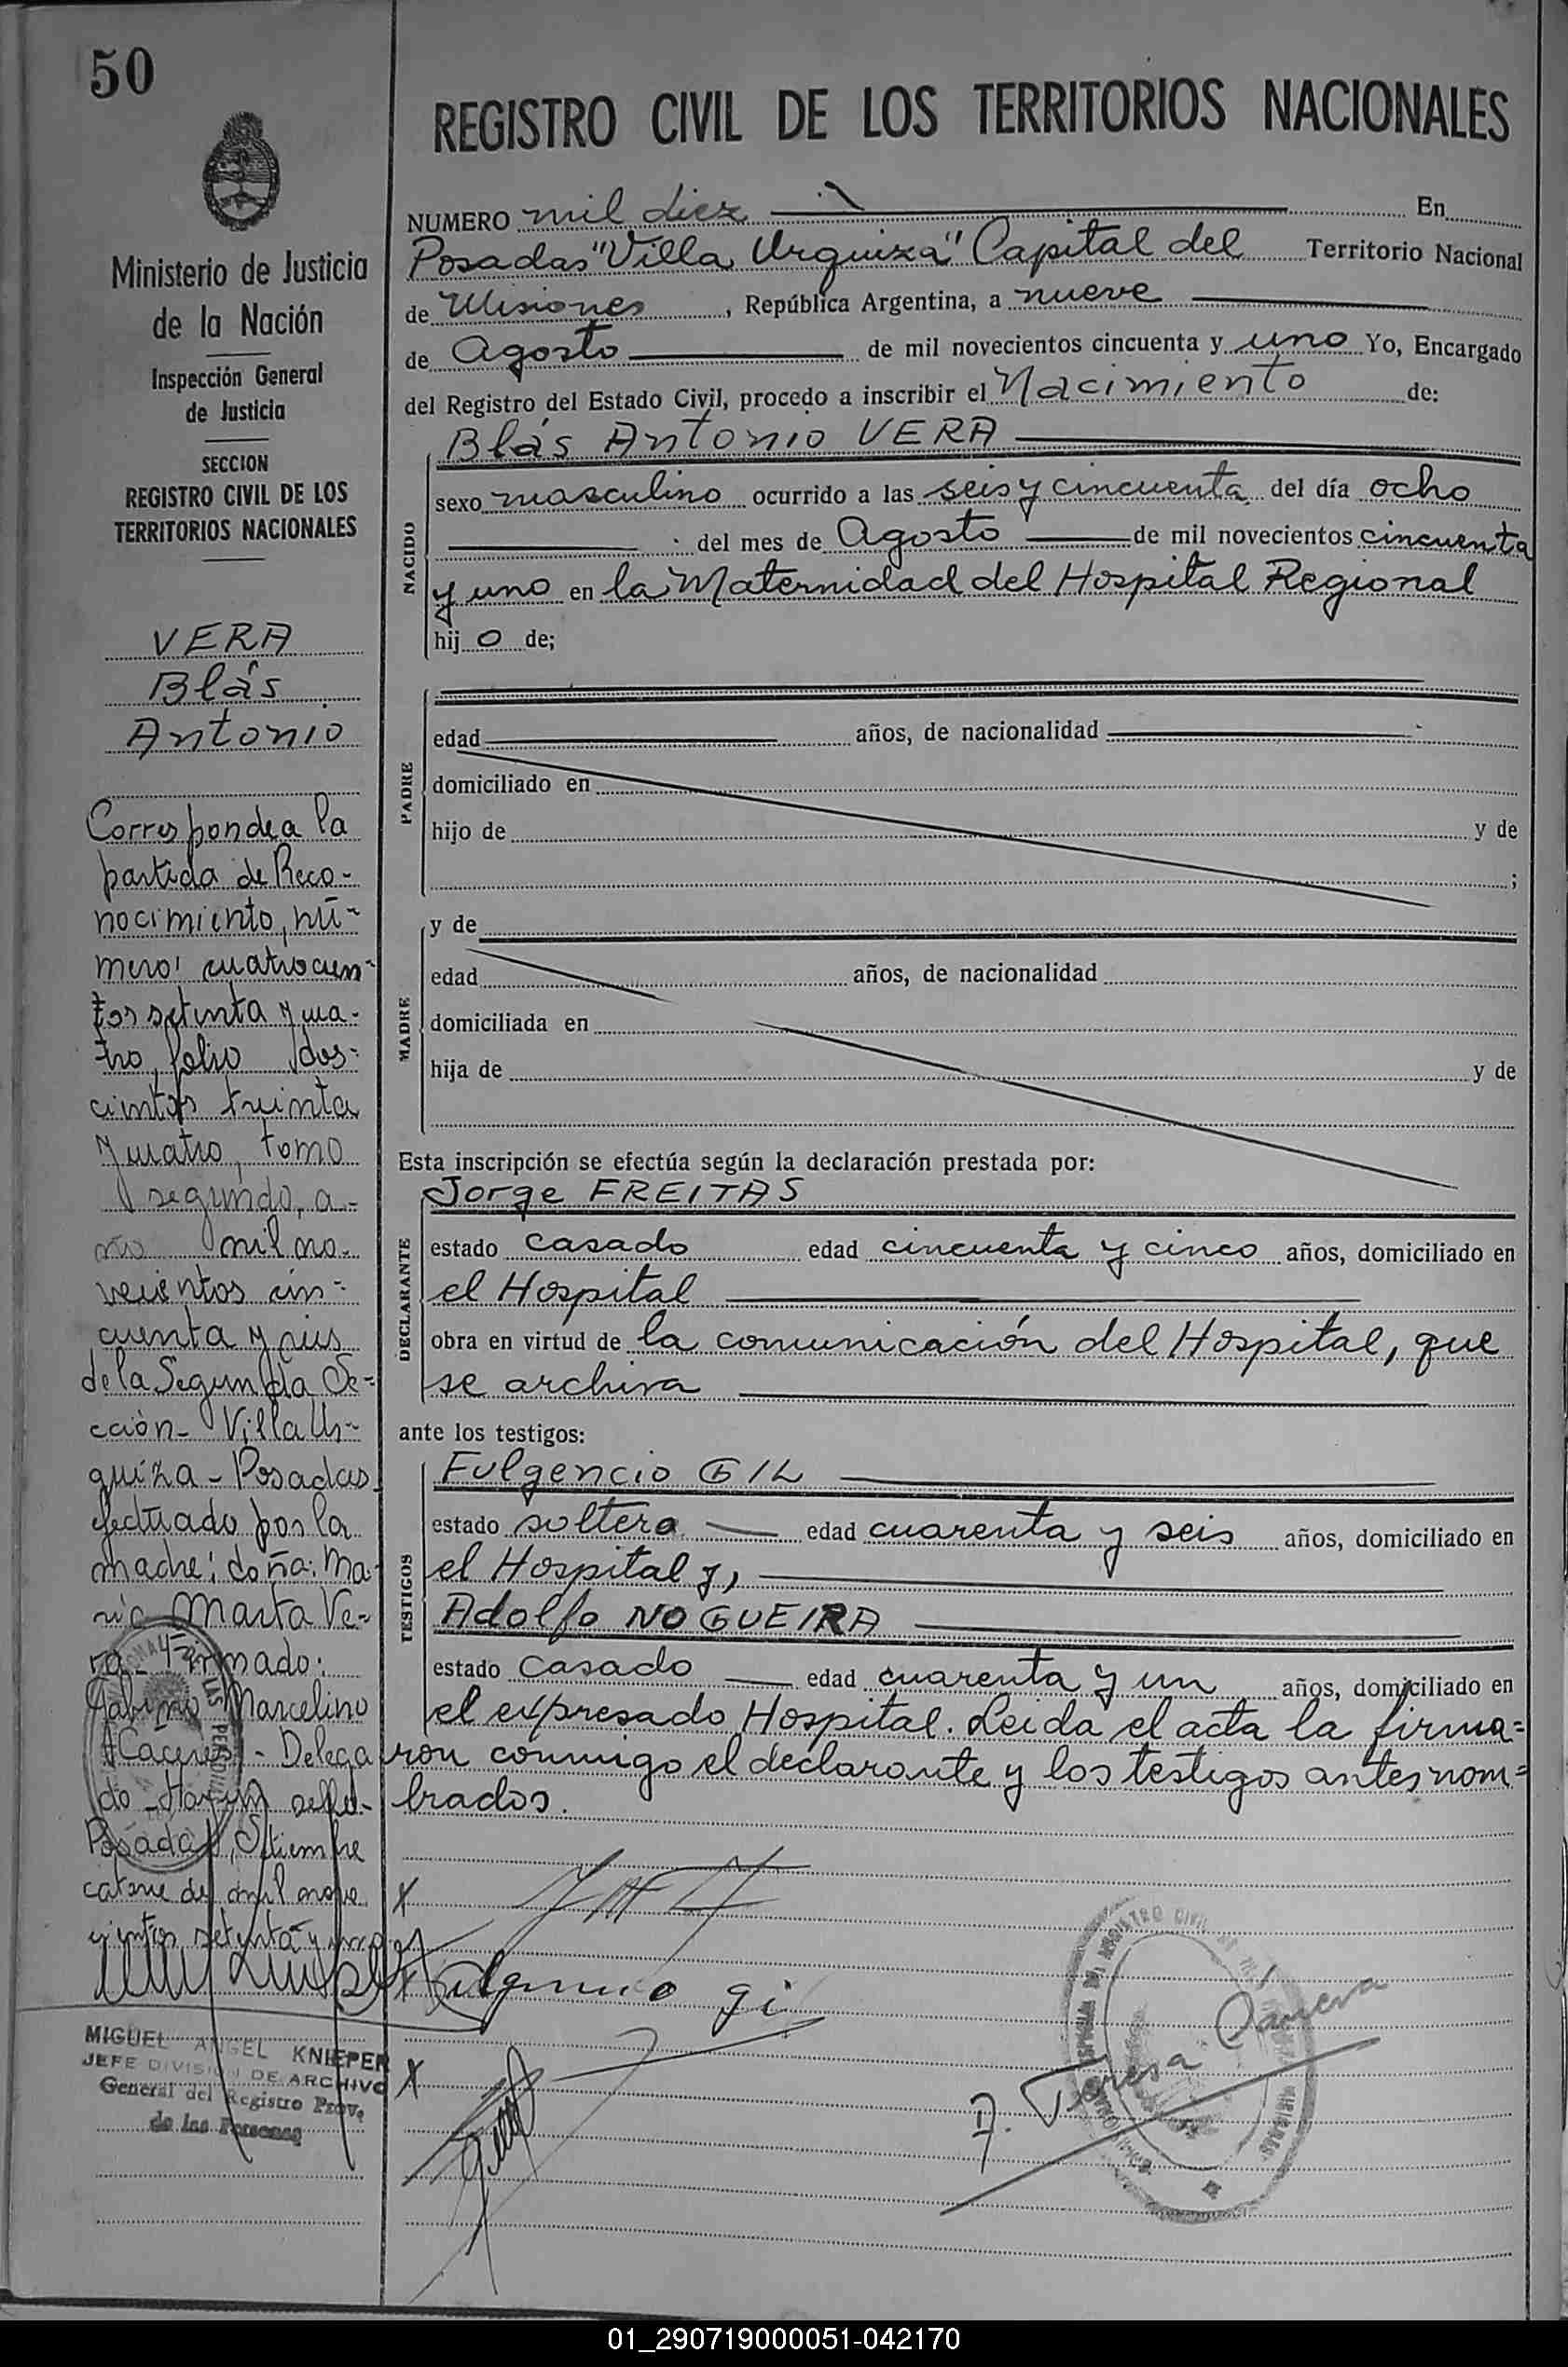 50
REGISTRO CIVIL DE LOS TERRITORIOS NACIONALES
Ministerio de Justicia
de la Nación
Inspección General
de Justicia
SECCION
REGISTRO CIVIL DE LOS
TERRITORIOS NACIONALES
VERA
Blás
Antonio
Corresponde a la
partida de Reco-
nocimiento, nú-
mero: cuatrocien-
tos setenta y cua-
tro, folio dos-
cientos treinta
y cuatro, tomo
segundo, a-
ño mil no-
vecientos cin-
cuenta y seis
de la Segunda Se-
cción- Villa Ur-
quiza - Posadas
efectuado por la
madre: doña: Ma-
ría Marta Ve-
ra - Firmado:
Gabino Marcelino
Caceres - Delega
do - Hay un sello-
Posadas, Setiembre
catorce de mil nove
cientos setenta y uno
MIGUEL ANGEL KNIEPER
JEFE DIVISION DE ARCHIVO
General del Registro Prov.
de las Personas
NUMERO mil diez En
Posadas "Villa Urquiza" Capital del Territorio Nacional
de Misiones , República Argentina, a nueve
de Agosto de mil novecientos cincuenta y uno Yo, Encargado
del Registro del Estado Civil, procedo a inscribir el Nacimiento de:
Blás Antonio VERA
NACIDO
sexo masculino ocurrido a las seis y cincuenta del día ocho
del mes de Agosto de mil novecientos cincuenta
y uno en la Maternidad del Hospital Regional
hij o de;
PADRE
edad años, de nacionalidad
domiciliado en
hijo de y de
;
MADRE
y de
edad años, de nacionalidad
domiciliada en
hija de y de
Esta inscripción se efectúa según la declaración prestada por:
DECLARANTE
Jorge FREITAS
estado casado edad cincuenta y cinco años, domiciliado en
el Hospital
obra en virtud de la comunicación del Hospital, que
se archiva
ante los testigos:
TESTIGOS
Fulgencio GIL
estado soltero edad cuarenta y seis años, domiciliado en
el Hospital y,
Adolfo NOGUEIRA
estado casado edad cuarenta y un años, domiciliado en
el expresado Hospital. Leida el acta la firma=
ron conmigo el declarante y los testigos antes nom=
brados.
x
x
x
01_290719000051-042170